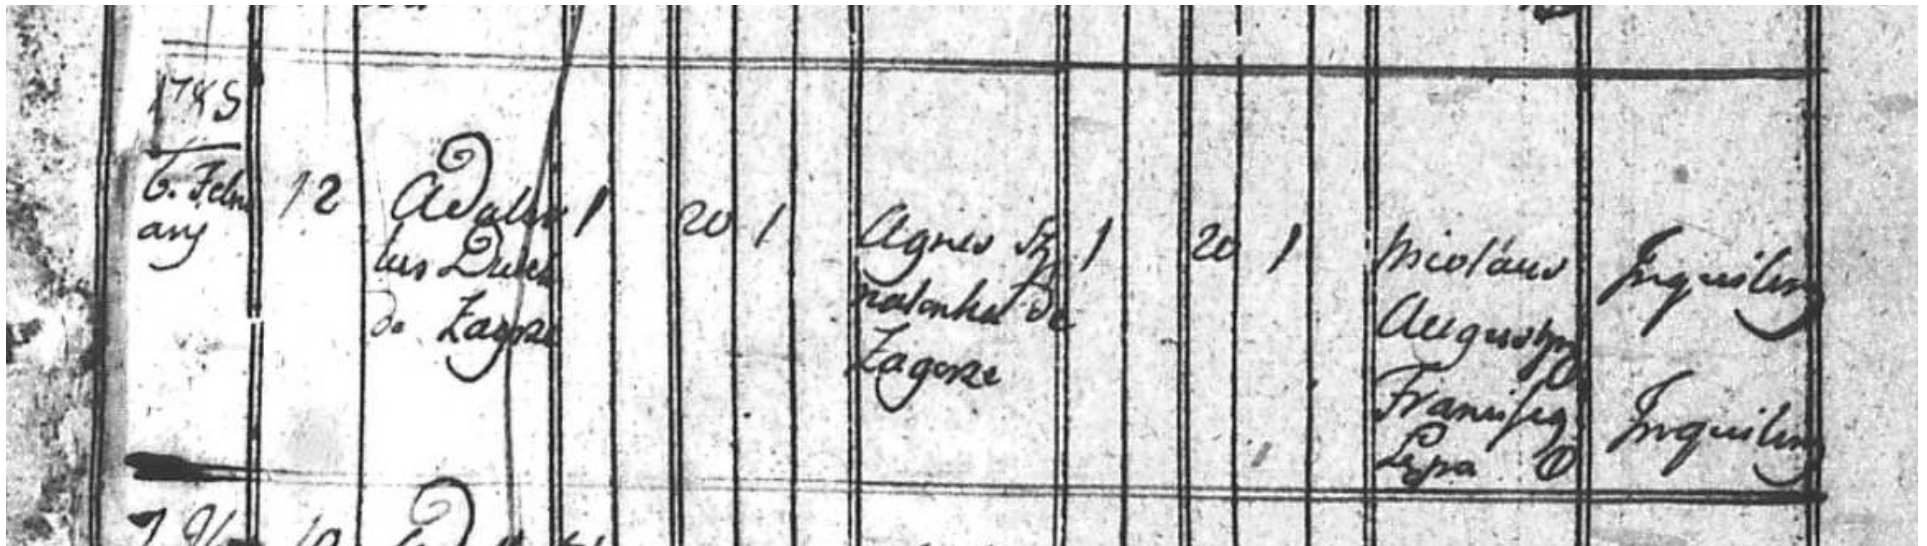 1785
6. Febru
ary
12
Adalber
tus Dudek
de Zagorze
1
20
1
Agnes
de
Zagorze
1
20
1
Nicolaus
Augustyn
Franciscg
Lepa
Inquiling
Inquiling